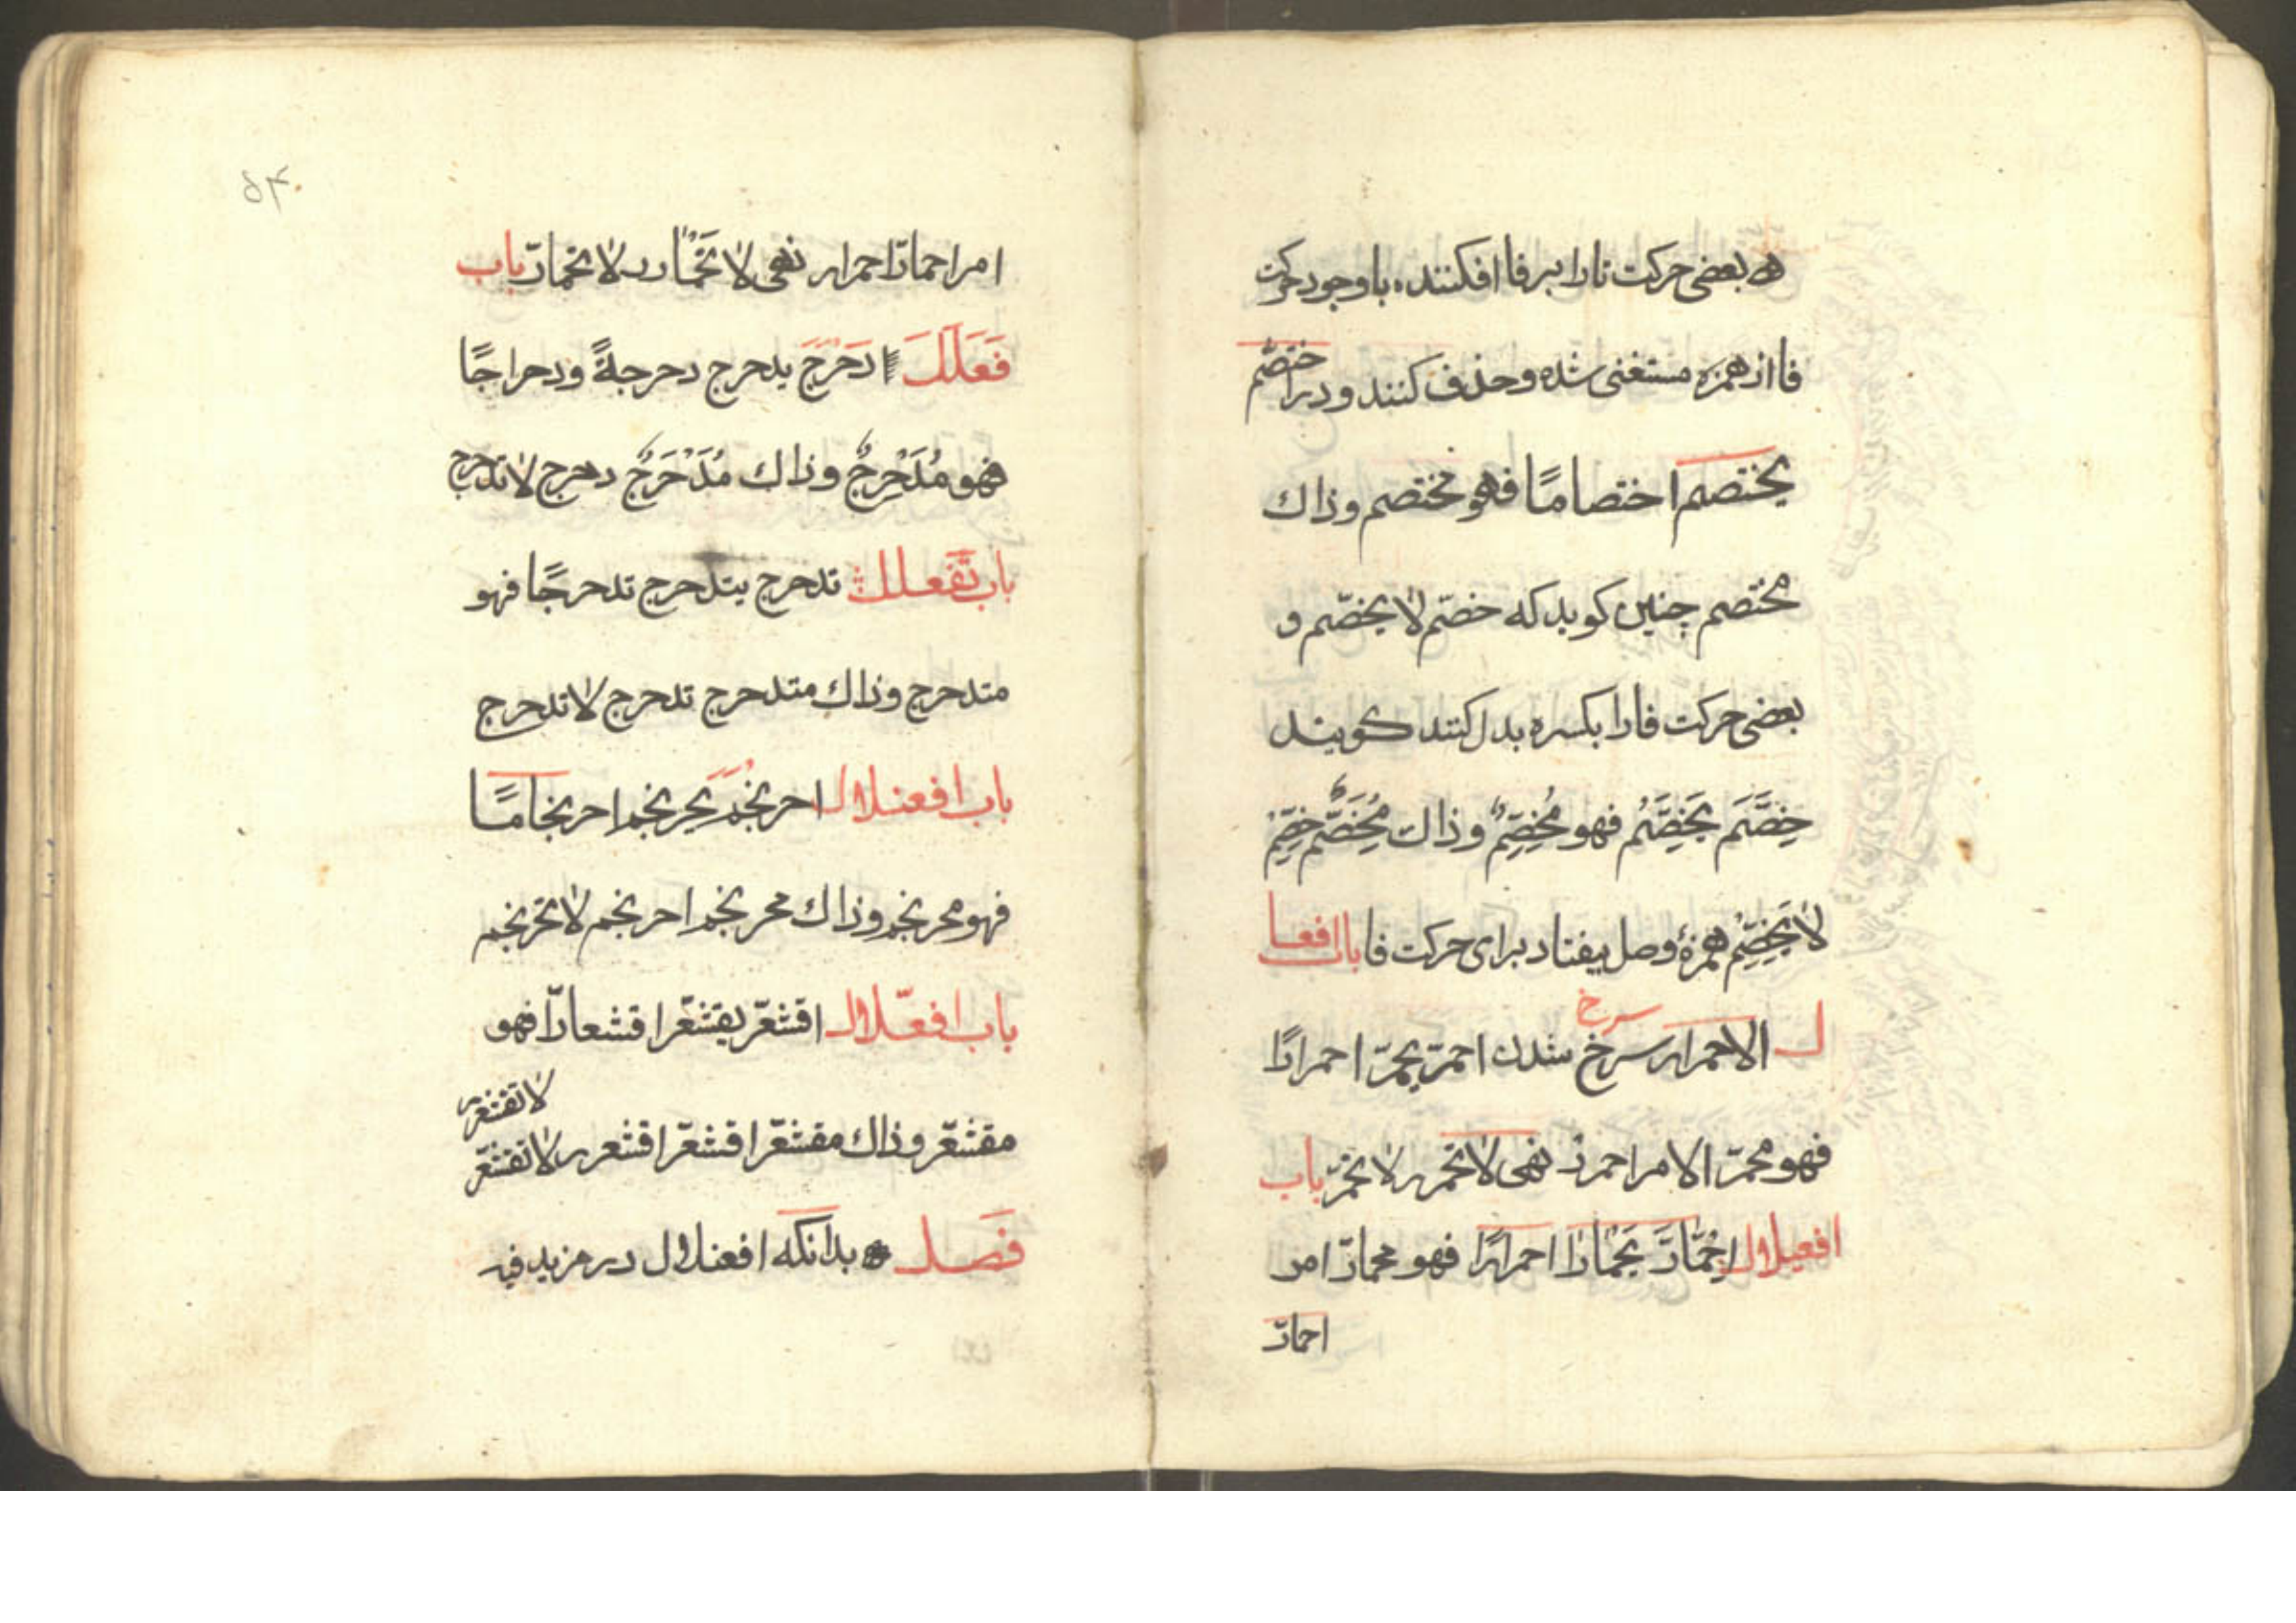 بعضی حرکت تارا بر فا افکنند، با وجود حرکت
فا از همزه مستغنی شده و حذف کنند و در اختصم
یختصم اختصامًا فهو مختصم وذاك
مختصم چنین کوید که خصّم لا یخصّم و
بعضی حرکت فارا بکسره بدل کنند کویند
خِصَّمَ یَخِصِّمُ فهو مُخِصِّمٌ وذاك مُخِصَّمٌ خِصِّمْ
لا یَخِصِّمْ همزهٔ وصل بیفتاد برای حرکت فا باب افعلا
ل الاحمرار سرخ شدن احمرّ یحمرّ احمرارًا
سرخ
فهو محمرّ الامر احمرر نهی لا تحمرر لا تحمرّ باب
افعیلال اِحْمَارَّ یَحْمَارُّ احمرارًا فهو محمارّ امر
احمارّ
۵۴
امر احمارّ احمارر نهی لا تَحْمَارر لا تحمارّ باب
فَعْلَلَ دَحْرَجَ یدحرج دحرجةً ودحراجًا
فهو مُدَحْرِجٌ وذاك مُدَحْرَجٌ دحرج لا تدحرج
باب تَفَعلل تدحرج یتدحرج تدحرجًا فهو
متدحرج وذاك متدحرج تدحرج لا تدحرج
باب افعنلال احرنجم یحرنجم احرنجامًا
فهو محرنجم وذاك محرنجم احرنجم لا تحرنجم
باب افعلّال اقشعرّ یقشعرّ اقشعرارًا فهو
لا تقشعرر
مقشعرّ وذاك مقشعرّ اقشعرّ اقشعرر لا تقشعرّ
فَصَل بدانکه افعنلال در مزید فیه